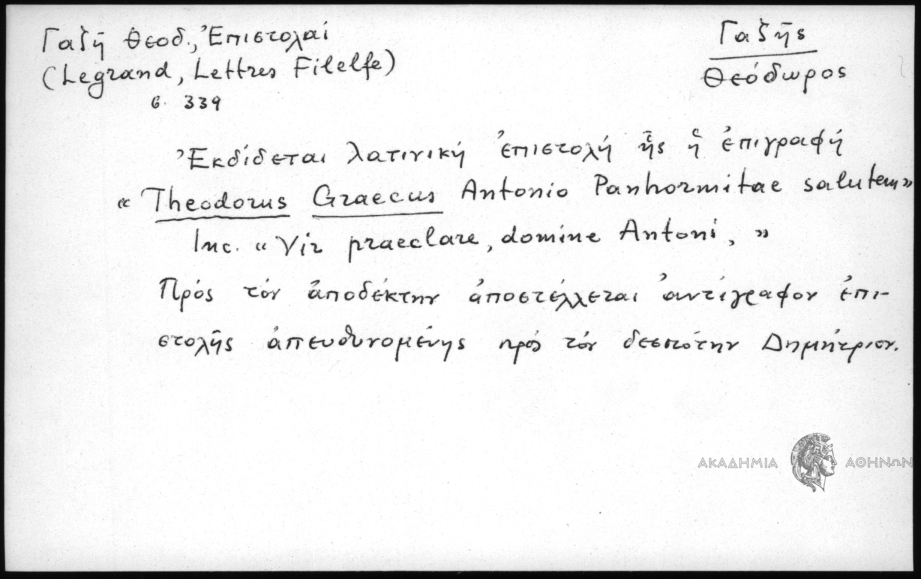 Γαζῆ Θεοδ., Ἐπιστολαί
(Legrand, Lettres Filelfe)
σ. 339
Γαζῆς
Θεόδωρος
Ἐκδίδεται λατινική ἐπιστολή ἧς ἡ ἐπιγραφή
« Theodorus Graecus Antonio Panhormitae salutem »
Inc. « Vir praeclare, domine Antoni, »
Πρός τόν ἀποδέκτην ἀποστέλλεται ἀντίγραφον ἐπι-
στολῆς ἀπευθυνομένης πρός τόν δεσπότην Δημήτριον.
ΑΚΑΔΗΜΙΑ ΑΘΗΝΩΝ